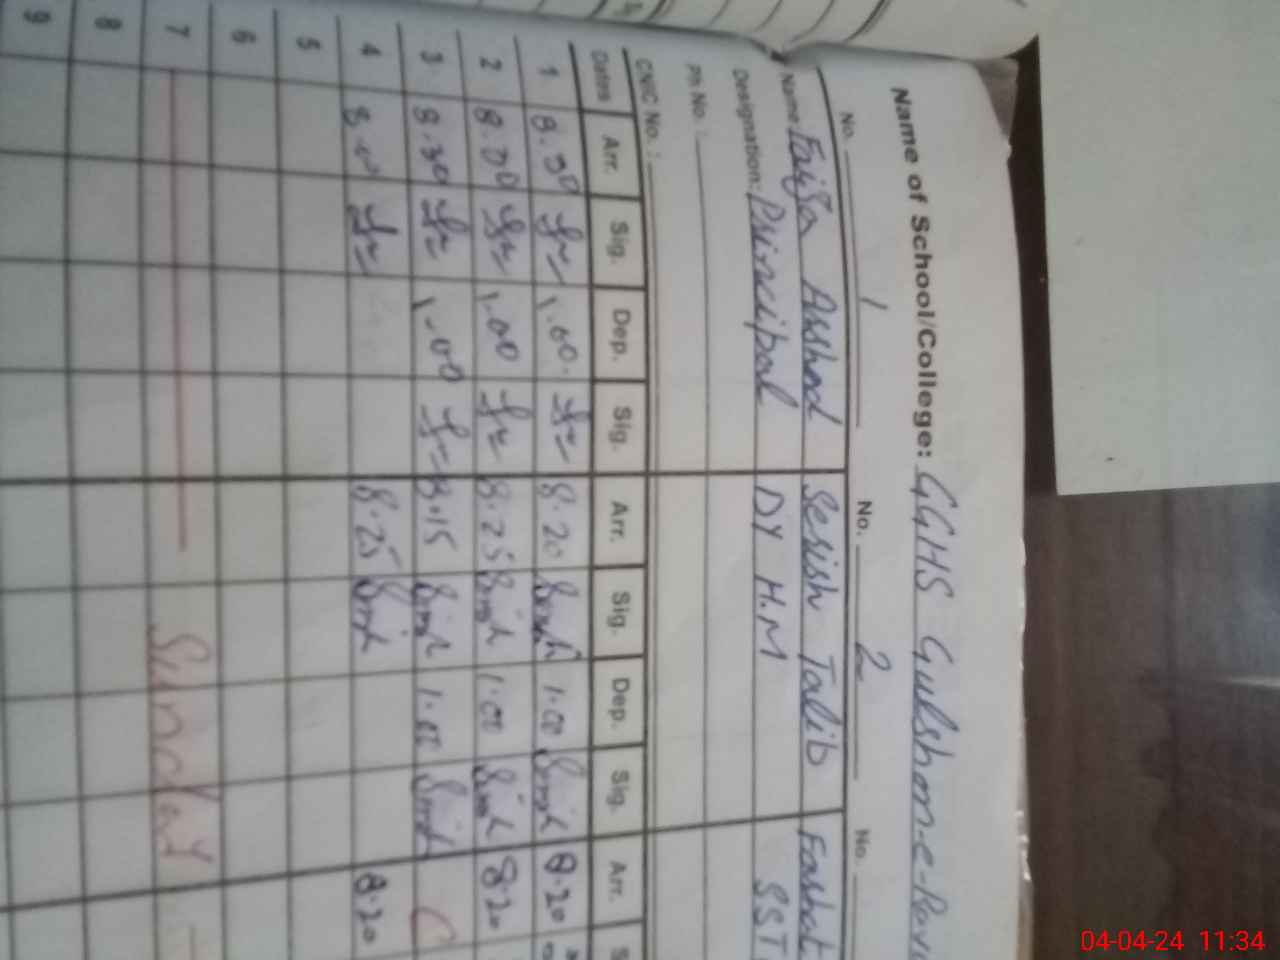 Name of School/College: GGHS Gulshan-e-Ravi
No. 1 No. 2 No.
Name Faiza Arshad Serish Talib Farhat
Designation: Principal DY H.M SST
Ph No. :
CNIC No. :
Dates Arr. Sig. Dep. Sig. Arr. Sig. Dep. Sig. Arr. S
1 8.30 1.00 8.20 1.00 8.20
2 8.00 1.00 8.25 1.00 8.20
3 8.30 1.00 8.15 1.00 C
4 8.00 8.25 8.20
5
6
7 Sunday
8
9
04-04-24 11:34